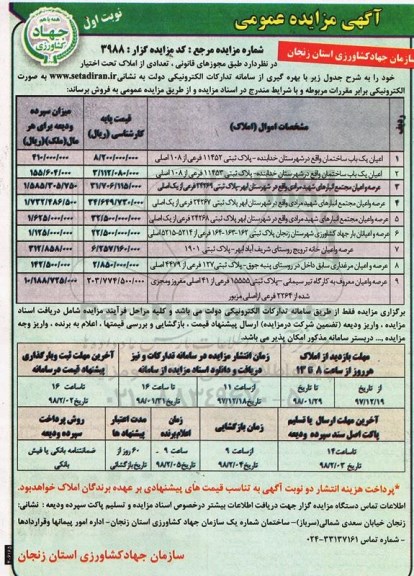 آگهی مزایده عمومی
نوبت اول
همه با هم
جهاد
کشاورزی
سازمان جهادکشاورزی استان زنجان
شماره مزایده مرجع : کد مزایده گزار : ۳۹۸۸
در نظر دارد طبق مجوزهای قانونی ، تعدادی از املاک تحت اختیار
خود را به شرح جدول زیر با بهره گیری از سامانه تدارکات الکترونیکی دولت به نشانی www.setadiran.ir به صورت
الکترونیکی برابر مقررات مربوطه و با شرایط مندرج در اسناد مزایده و از طریق مزایده عمومی به فروش برساند:
ردیف
مشخصات اموال (املاک)
قیمت پایه کارشناسی (ریال)
میزان سپرده ودیعه برای هر سال(ملک)(ریال)
۱ اعیان یک باب ساختمان واقع در شهرستان خدابنده - پلاک ثبتی ۱۱۴۵۲ فرعی از ۱۰۸ اصلی ۸/۲۰۰/۰۰۰/۰۰۰ ۴۱۰/۰۰۰/۰۰۰
۲ اعیان یک باب ساختمان واقع در شهرستان خدابنده - پلاک ثبتی ۱۱۴۵۳ فرعی از ۱۰۸ اصلی ۳/۱۱۲/۰۸۰/۰۰۰ ۱۵۵/۶۰۴/۰۰۰
۳ عرصه واعیان مجتمع انبارهای شهید مرادی واقع در شهرستان ابهر-پلاک ثبتی ۲۴۲۶۹ فرعی از یک اصلی ۳۱/۷۰۶/۱۱۵/۰۰۰ ۱/۵۸۵/۳۰۵/۷۵۰
۴ عرصه واعیان مجتمع انبارهای شهید مرادی واقع در شهرستان ابهر پلاک ثبتی ۲۴۲۶۷ فرعی از یک اصلی ۳۴/۶۴۹/۷۳۰/۰۰۰ ۱/۷۳۲/۴۸۶/۵۰۰
۵ عرصه واعیان مجتمع انبارهای شهید مرادی واقع در شهرستان ابهر پلاک ثبتی ۲۴۲۶۸ فرعی از یک اصلی ۳۲/۵۰۰/۰۰۰/۰۰۰ ۱/۶۲۵/۰۰۰/۰۰۰
۶ عرصه واعیان بار جهاد کشاورزی شهرستان زنجان پلاک ثبتی ۱۶۲-۱۶۳-۱۶۴ فرعی از ۵۲۱۴-۵۲۱۵ اصلی ۲۲/۵۰۰/۰۰۰/۰۰۰ ۱/۱۲۵/۰۰۰/۰۰۰
۷ عرصه واعیان خانه ترویج روستای شریف آباد ابهر- پلاک ثبتی ۱۹۰۱ ۶/۲۵۷/۱۶۰/۰۰۰ ۳۱۲/۸۵۸/۰۰۰
۸ عرصه واعیان مرغداری سابق داخل در روستای پنبه جوق- پلاک ثبتی ۱۲۷ فرعی از ۴۴۷۹ اصلی ۲/۸۵۰/۰۰۰/۰۰۰ ۱۴۲/۵۰۰/۰۰۰
۹ عرصه واعیان معروف به کارگاه تیر سیمانی - پلاک ثبتی ۱۵۵۵۵ فرعی از ۴۱ اصلی مفروز ومجزی شده از ۲۲۶۴ فرعی از اصلی مزبور ۲۰۳/۷۷۴/۵۰۰/۰۰۰ ۱۰/۱۸۸/۷۲۵/۰۰۰
برگزاری مزایده فقط از طریق سامانه تدارکات الکترونیکی دولت می باشد و کلیه مراحل فرآیند مزایده شامل دریافت اسناد
مزایده ، واریز ودیعه (تضمین شرکت در مزایده) ارسال پیشنهاد قیمت ، بازگشایی و بررسی قیمتها ، اعلام به برنده ، واریز وجه
مزایده ... در بستر سامانه مذکور امکان پذیر می باشد.
مهلت بازدید از املاک هر روز از ساعت ۸ تا ۱۳
زمان انتشار مزایده در سامانه تدارکات و نیز دریافت و دانلود اسناد مزایده از سامانه
آخرین مهلت ثبت وبارگذاری پیشنهاد قیمت در سامانه
از تاریخ ۹۷/۱۲/۱۹
تا تاریخ ۹۸/۰۱/۲۹
از ساعت ۱۱ تاریخ ۹۷/۱۲/۱۸
تا ساعت ۱۶ تاریخ ۹۸/۰۱/۳۱
تا ساعت ۱۶ تاریخ ۹۸/۰۲/۰۲
آخرین مهلت ارسال یا تسلیم پاکت اصل سند سپرده ودیعه
زمان بازگشایی
زمان اعلام برنده
مدت اعتبار پیشنهاد ها
روش پرداخت سپرده ودیعه
تا ساعت ۱۴ تاریخ ۹۸/۰۲/۰۳
از ساعت ۹ تاریخ ۹۸/۰۲/۰۴
ساعت ۹ - تاریخ ۹۸/۰۲/۰۵
۶۰ روز از تاریخ بازگشائی
ضمانتنامه بانکی یا فیش بانکی
*پرداخت هزینه انتشار دو نوبت آگهی به تناسب قیمت های پیشنهادی بر عهده برندگان املاک خواهدبود.
اطلاعات تماس دستگاه مزایده گزار جهت دریافت اطلاعات بیشتر درخصوص اسناد مزایده و تسلیم پاکت سپرده ودیعه : نشانی:
زنجان خیابان سعدی شمالی(سرباز)- ساختمان شماره یک سازمان جهاد کشاورزی استان زنجان- اداره امور پیمانها وقراردادها
- شماره تماس ۳۳۱۳۷۱۶۱-۰۲۴
سازمان جهادکشاورزی استان زنجان